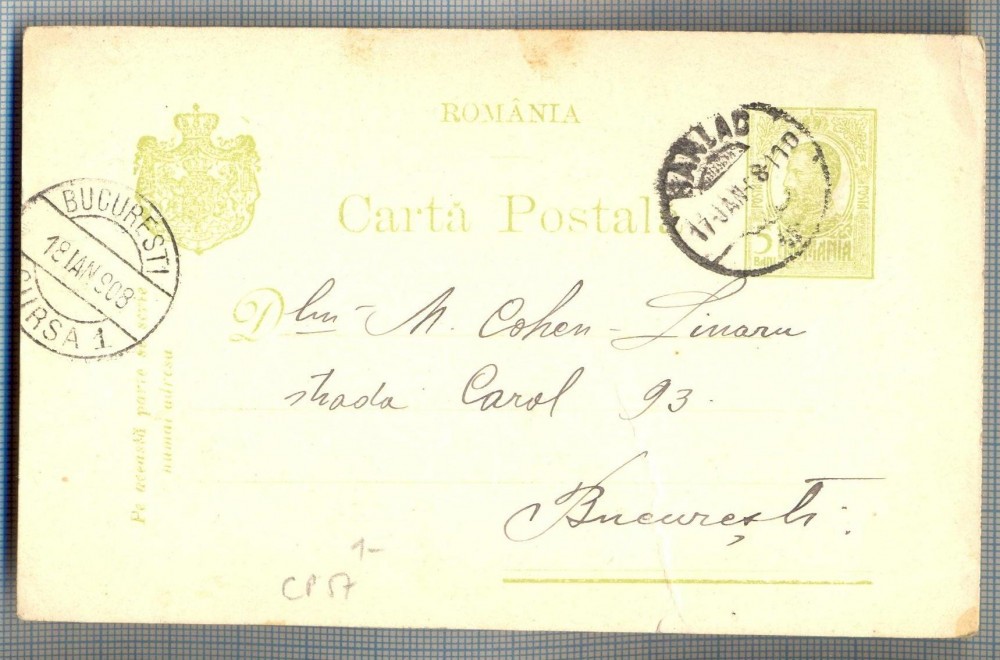 ROMÂNIA
Cartă Postală
5
BANI
ROMANIA
17 JAN
8-11 D
BUCURESTI
18 IAN 908
CURSA 1
Dlui M. Cohen-Linaru
strada Carol 93.
Bucureşti.
Pe această parte se scrie
numai adresa
1-
CP 57